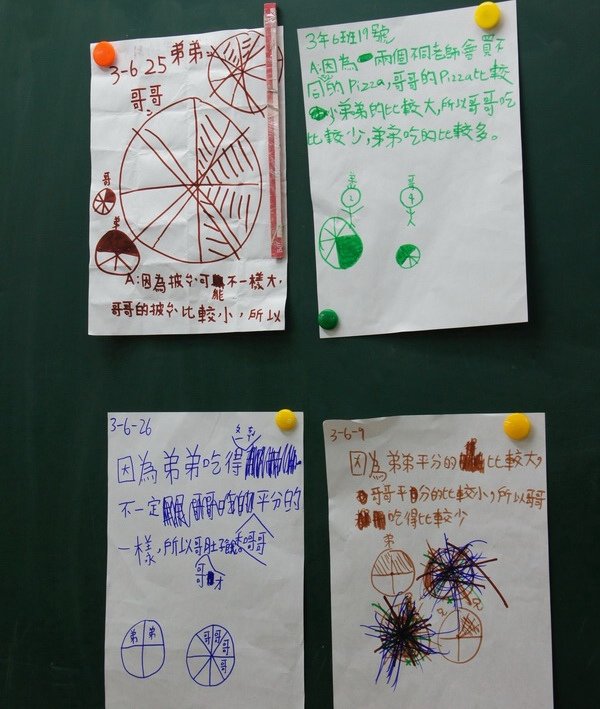 3-6 25 弟弟:
哥哥:
哥
弟
A:因為披ㄙㄚ可能不一樣大,
哥哥的披ㄙㄚ比較小,所以
3年6班19號
A:因為兩個不同老師會買不
同的Pizza,哥哥的Pizza比較
小弟弟的比較大,所以哥哥吃
比較少,弟弟吃的比較多。
弟 哥
2 4
3-6-26
因為弟弟吃得
不一定 平分的
一樣,所以哥肚子餓
哥 才
弟 弟
哥 哥 哥 哥
3-6-9
因為弟弟平分的比較大,
哥哥平分的比較小,所以哥哥
吃得比較少
弟